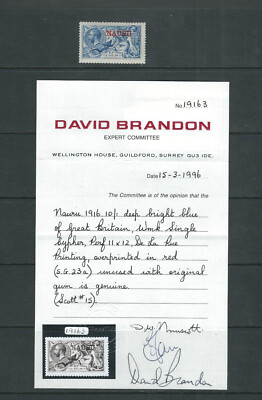 NAURU
No 19163
DAVID BRANDON
EXPERT COMMITTEE
WELLINGTON HOUSE, GUILDFORD, SURREY GU3 1DE.
Date 15-3-1996
The Committee is of the opinion that the
Nauru 1916 10/- deep bright blue
of Great Britain, Wmk Single
Cypher, Perf 11 x 12, De La Rue
Printing, overprinted in red
(S.G. 23a) unused with original
gum is genuine.
(Scott #15)
19163
NAURU
David Brandon